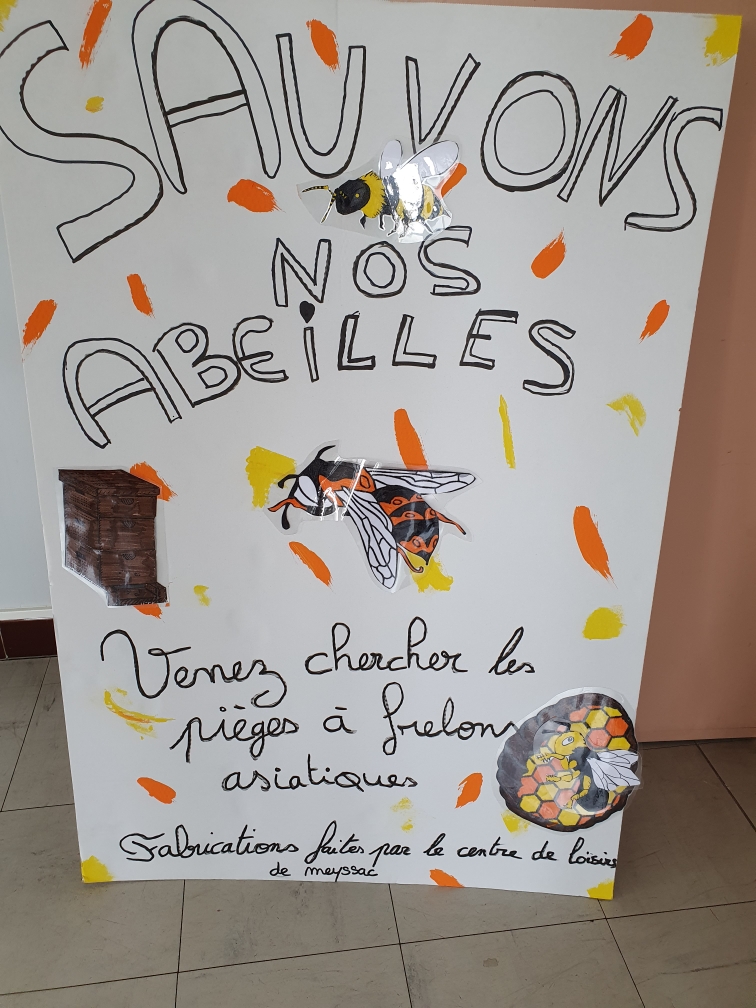 SAUVONS
NOS
ABEiLLES
Venez chercher les
pièges à frelons
asiatiques
Fabrications faites par le centre de loisirs
de meyssac